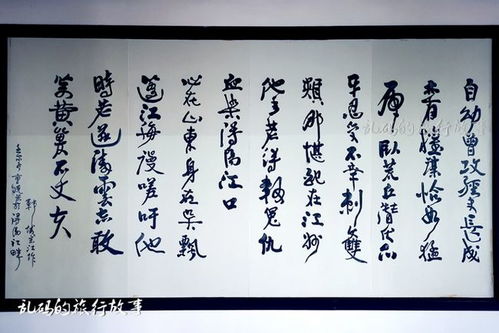 自幼曾攻經史長成
亦有權謀恰如猛
虎臥荒丘潛伏爪
牙忍受不幸刺雙
頰那堪配在江州
他年若得報冤仇
血染潯陽江口
心在山東身在吳飄
蓬江海漫嗟吁他
時若遂凌雲志敢
笑黃巢不丈夫
宋江作
潯陽江畔
乱码的旅行故事
乱码的旅行故事